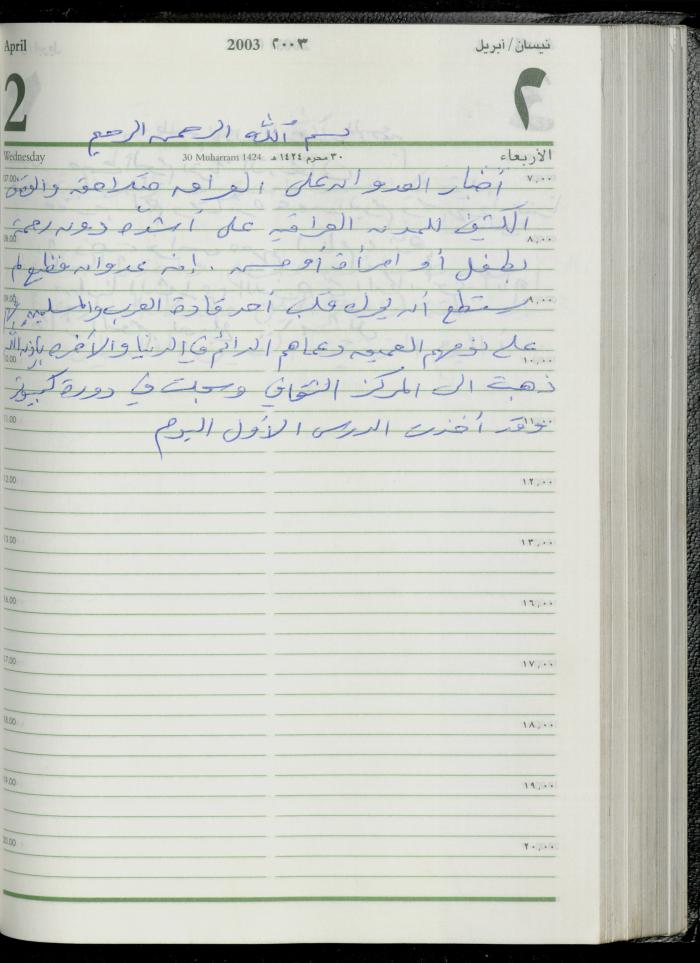 April 2003 ٢٠٠٣ نيسان/أبريل
2 ٢
بسم الله الرحمن الرحيم
Wednesday 30 Muharram 1424 ٣٠ محرم ١٤٢٤ هـ الأربعاء
07.00 أخبار العدوان على العراق متلاحقة والقصف ٧,٠٠
الكثيف للمدن العراقية على أشده دون رحمة
08.00 ٨,٠٠
بطفل أو امرأة أو مسن . إنه عدوان فظيع لم
09.00 يستطع أن يحرك قلب أحد قادة العرب والمسلمين ٩,٠٠
على نومهم العميق وعماهم الدائم في الدنيا والآخرة بإذن الله
10.00 ١٠,٠٠
ذهبت الى المركز الثقافي وسجلت في دورة كمبيوتر
11.00 وقد أخذت الدرس الأول اليوم ١١,٠٠
12.00 ١٢,٠٠
13.00 ١٣,٠٠
16.00 ١٦,٠٠
17.00 ١٧,٠٠
18.00 ١٨,٠٠
19.00 ١٩,٠٠
20.00 ٢٠,٠٠